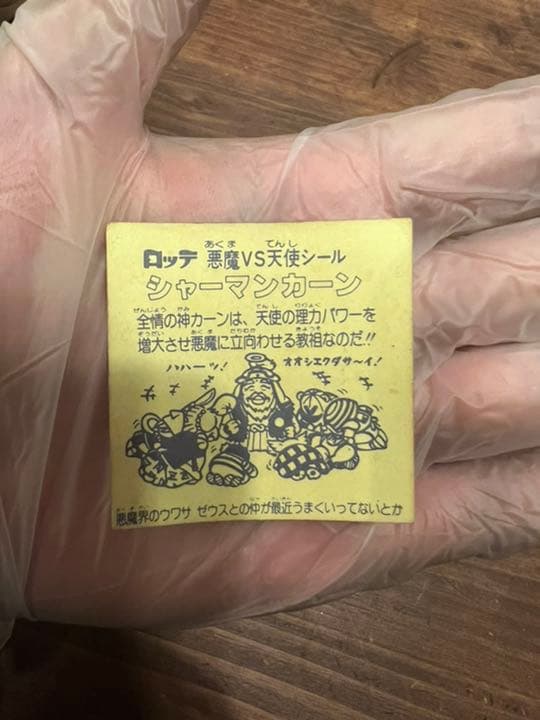 ロッテ 悪魔VS天使シール
シャーマンカーン
全情の神カーンは、天使の理力パワーを
増大させ悪魔に立向わせる教祖なのだ!!
ハハーッ! オオシエクダサ〜イ!
悪魔界のウワサ ゼウスとの仲が最近うまくいってないとか